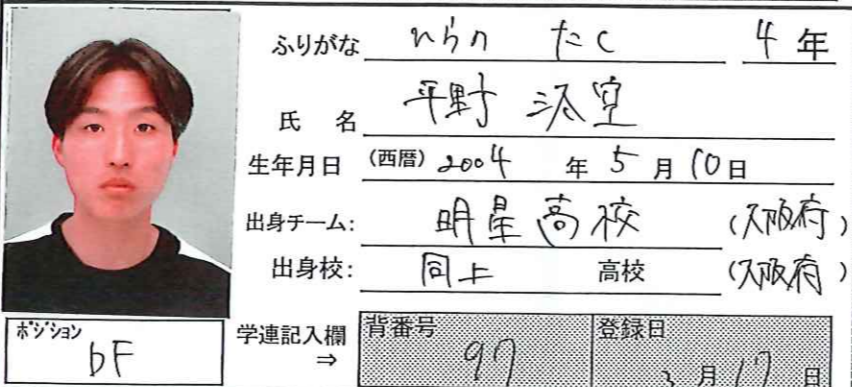 ふりがな ひらの たく 4年
氏 名 平野 汰空
生年月日 (西暦) 2004 年 5 月 10日
出身チーム: 明星高校 (大阪府)
出身校: 同上 高校 (大阪府)
ポジション 学連記入欄 背番号 登録日
DF ⇒ 97 3 月 17 日